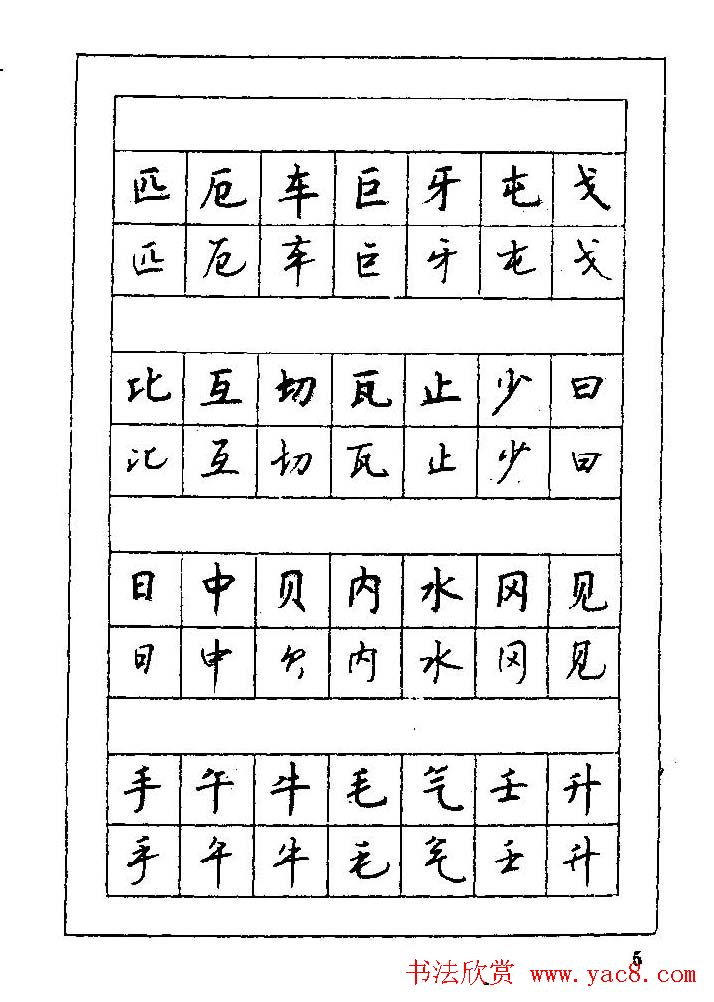 匹 厄 车 巨 牙 屯 戈
匹 厄 车 巨 牙 屯 戈
比 互 切 瓦 止 少 曰
比 互 切 瓦 止 少 曰
日 中 贝 内 水 冈 见
日 中 贝 内 水 冈 见
手 午 牛 毛 气 壬 升
手 午 牛 毛 气 壬 升
5
书法欣赏 www.yac8.com